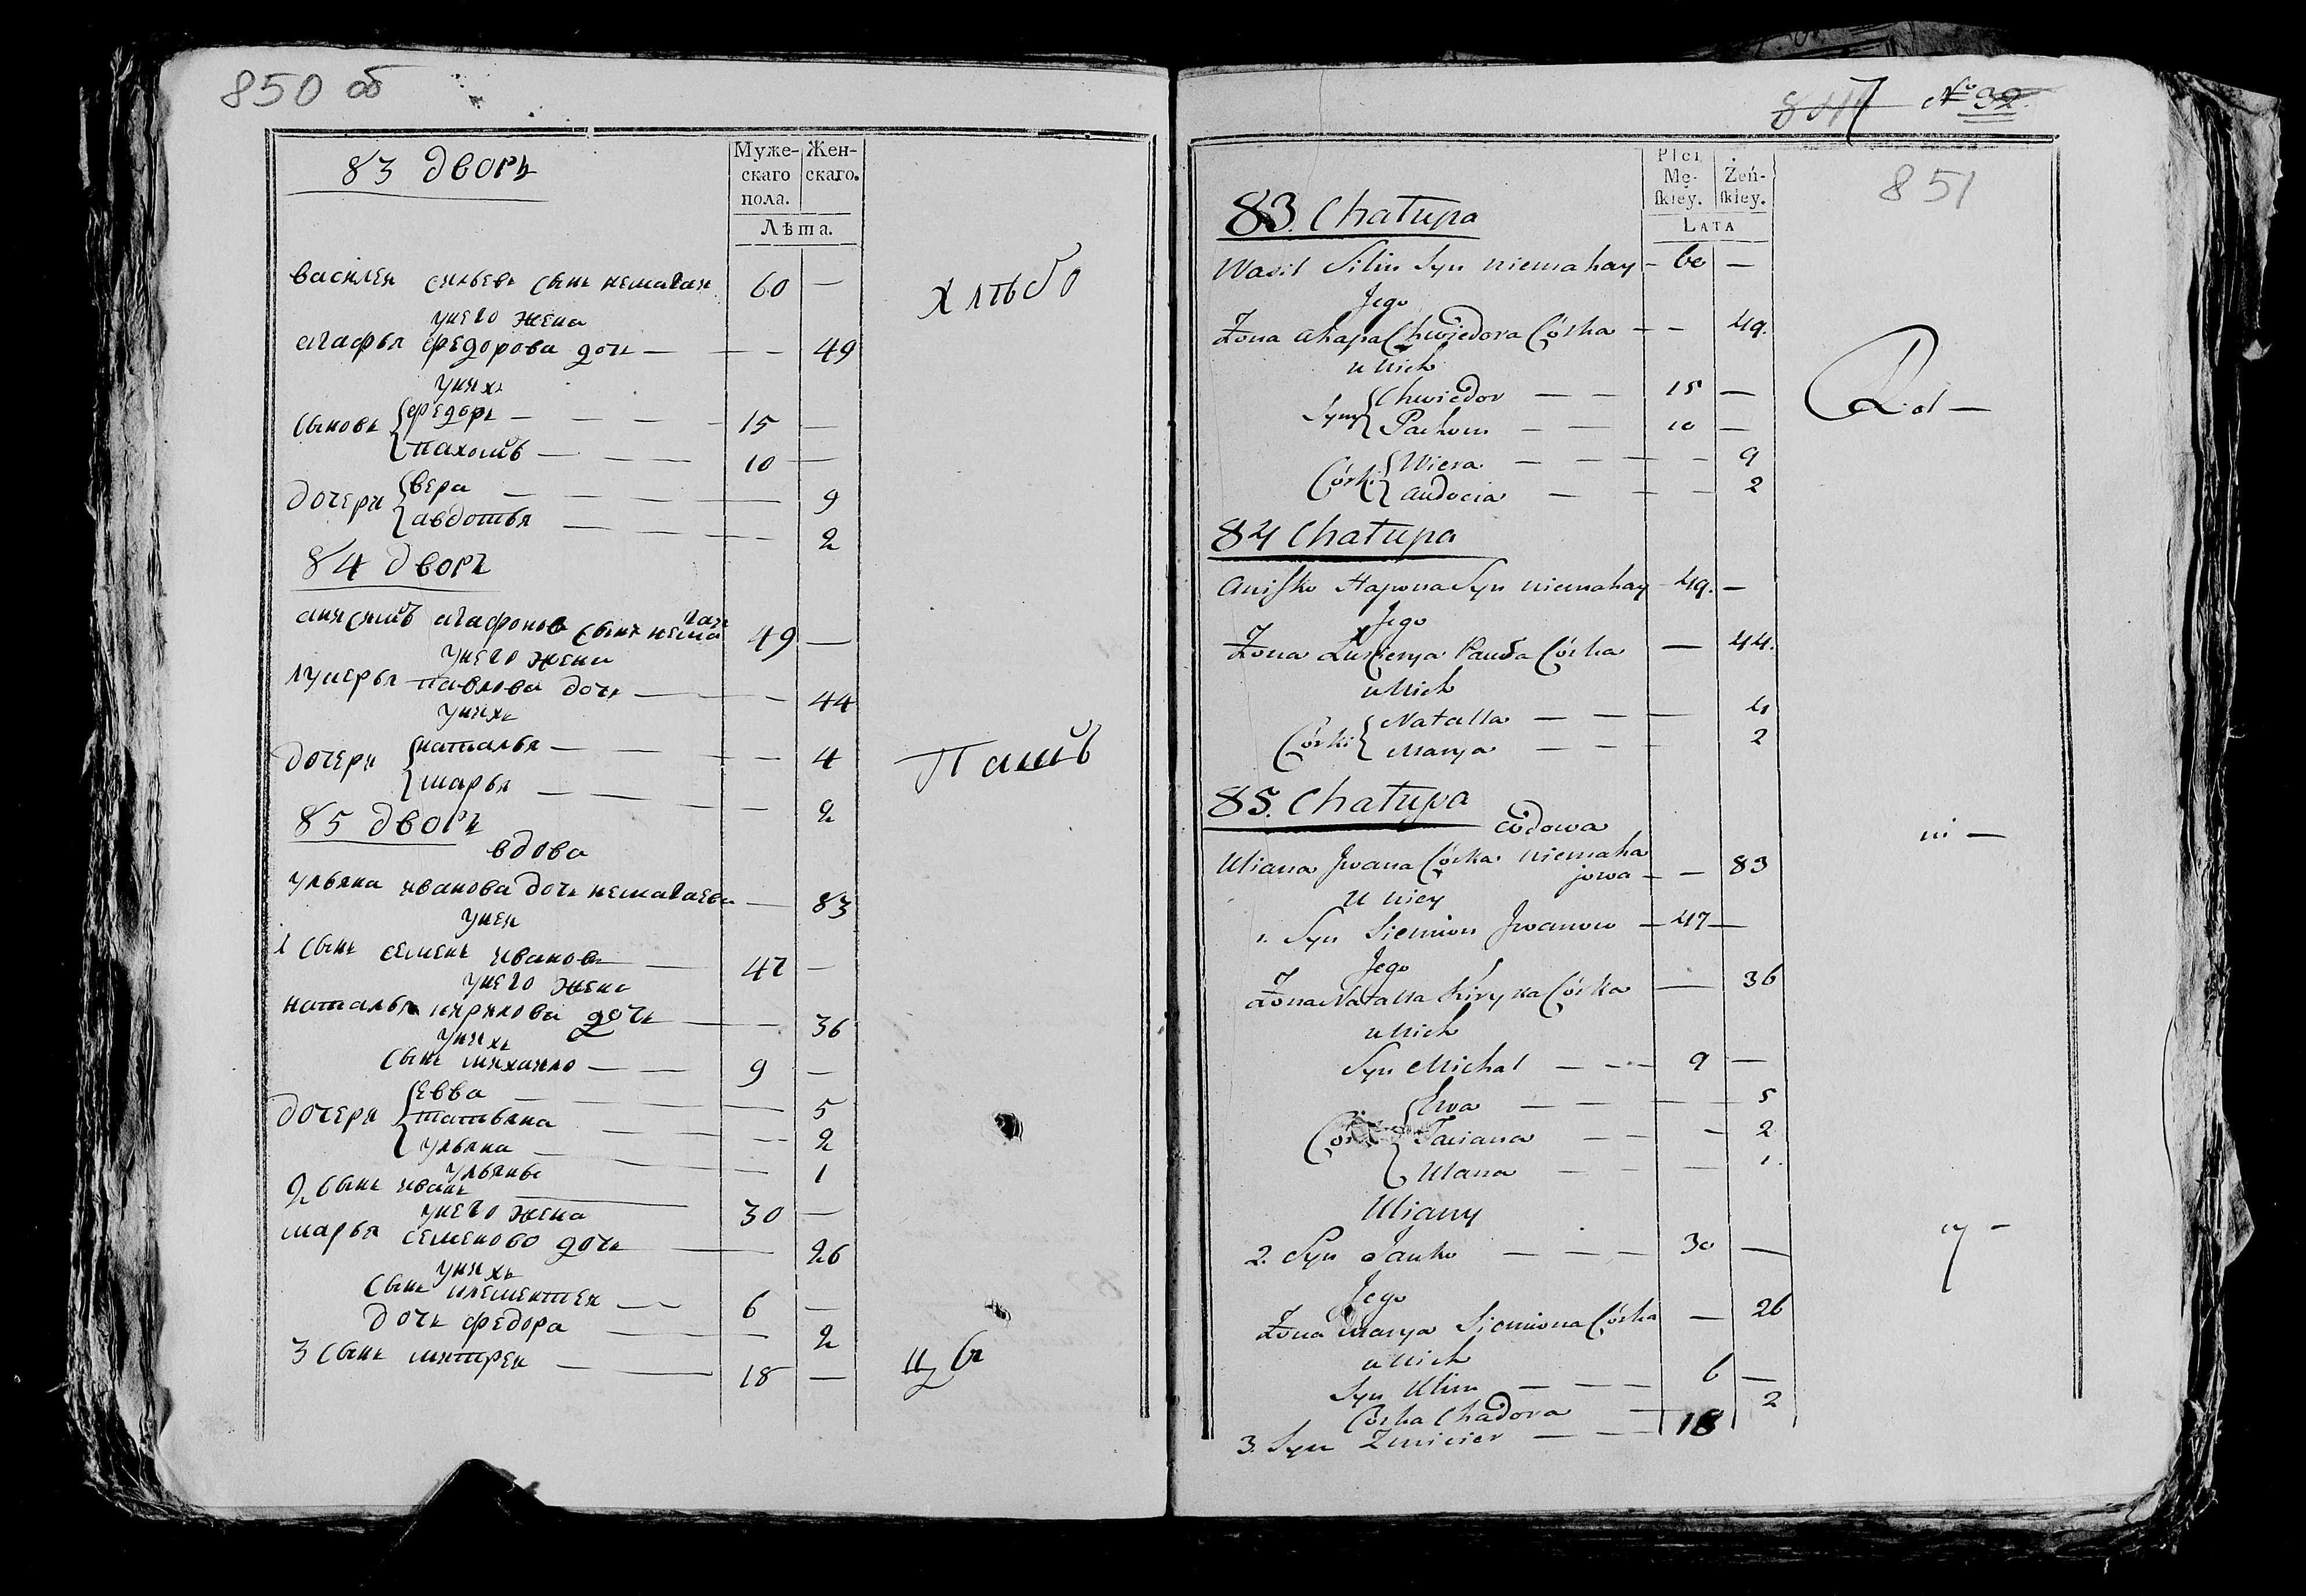 850 об
83 дворъ
Муже- Жен-
скаго скаго.
пола.
Лѣта.
василеи сильевъ сынъ немагаи 60 —
унего жена
агафья федорова дочь — — — 49
унихъ
сынове { федоръ — — — — 15 —
{ пахомъ — — — — 10 —
дочери { вера — — — — — 9
{ авдотья — — — — 2
84 дворъ
анисимъ агафоновъ сынъ нема 49 —
гаи
унего жена
лукерья павлова дочь — — — 44
унихъ
дочери { наталья — — — — 4
{ марья — — — — 2
85 дворъ
вдова
ульяна иванова дочь немагаева — 83
унеи
1 сынъ семенъ ивановъ — 47 —
унего жена
наталья кирилова дочь — — 36
унихъ
сынъ михаило — — 9 —
дочери { евва — — — — 5
{ татьяна — — — 2
{ ульяна — — — — 1
ульяны
2 сынъ иванъ — 30 —
унего жена
марья семенова дочь — — 26
унихъ
сынъ клементеи — — 6 —
дочь федора — — — 2
3 сынъ митреи — — 18 —
Хлѣбо
Пашъ
№ 32
851
Płci
Mę- Żeń-
ſkiey. ſkiey.
LATA
83. Chałupa
Wasil Silin Syn Niemahay — 60 —
Jego
Żona Ahapa Chwiedora Córka — — 49.
u Nich
Syny { Chwiedor — — 15 —
{ Pachom — — 10 —
Córki { Wiera — — — — 9
{ Audocia — — — 2
84 Chałupa
Aniſko Hapona Syn Niemahay — 49. —
Jego
Żona Łukierya Pauła Córka — 44.
u Nich
Córki { Natalla — — — 4
{ Marya — — — 2
85. Chałupa
wdowa
Uliana Jwana Córka Niemaha
jowa — — 83
U niey
1. Syn Siemion Jwanow — 47 —
Jego
Żona Natalla Kiryła Córka — 36
u Nich
Syn Michał — — — 9 —
{ Ewa — — — — 5
{ Taciana — — — 2
{ Ulana — — — 1.
Uliany
2. Syn Janko — — — 30 —
Jego
Żona Marya Siemiona Córka — 26
u Nich
Syn Klim — — — 6 —
Córka Chadora — 2
3. Syn Zmicier — — — 18
ni —